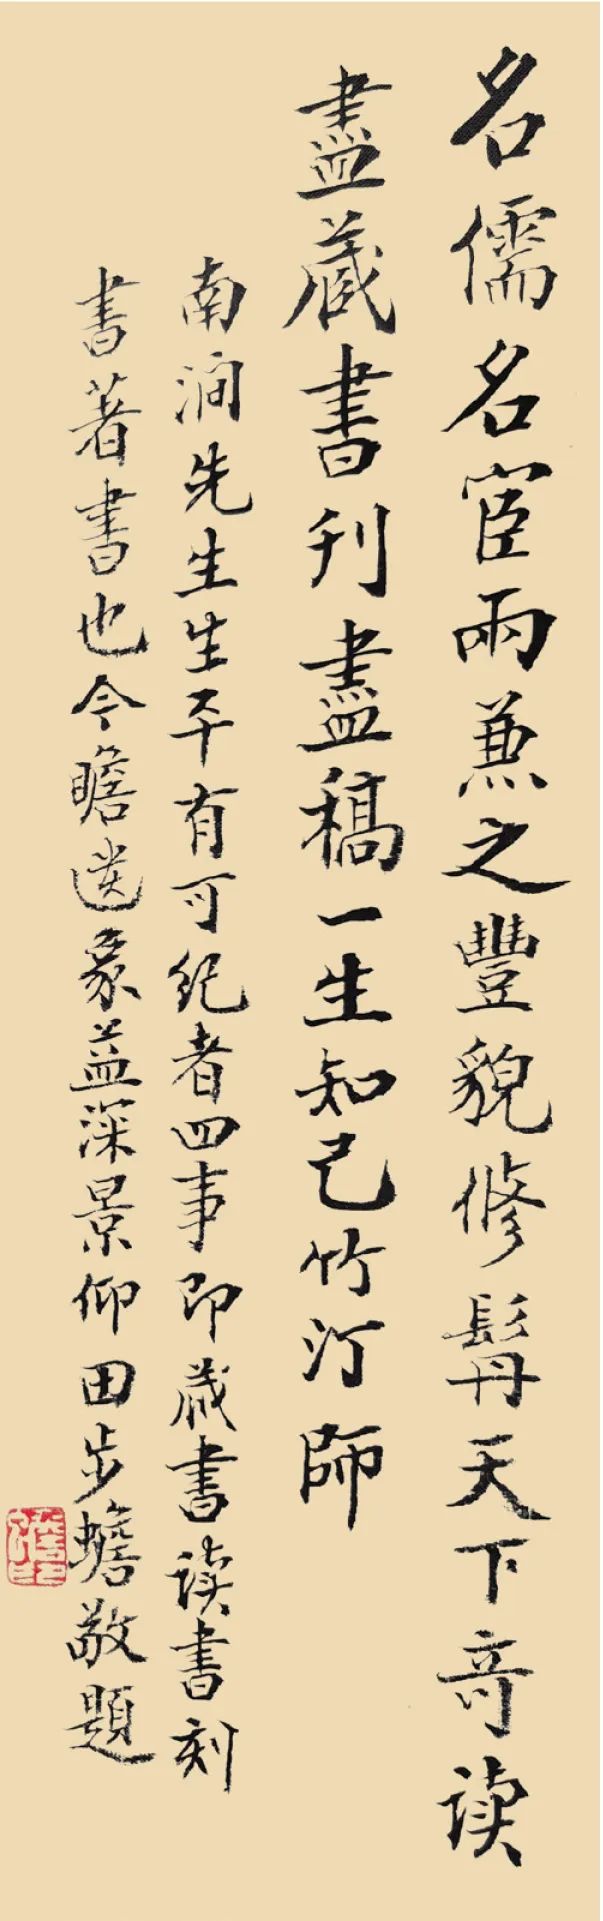 名儒名宦兩兼之豐貌修髯天下奇读
盡藏書刊盡稿一生知己竹汀師
南涧先生生平有可纪者四事即藏書读書刻
書著書也今瞻遗象益深景仰田步蟾敬題